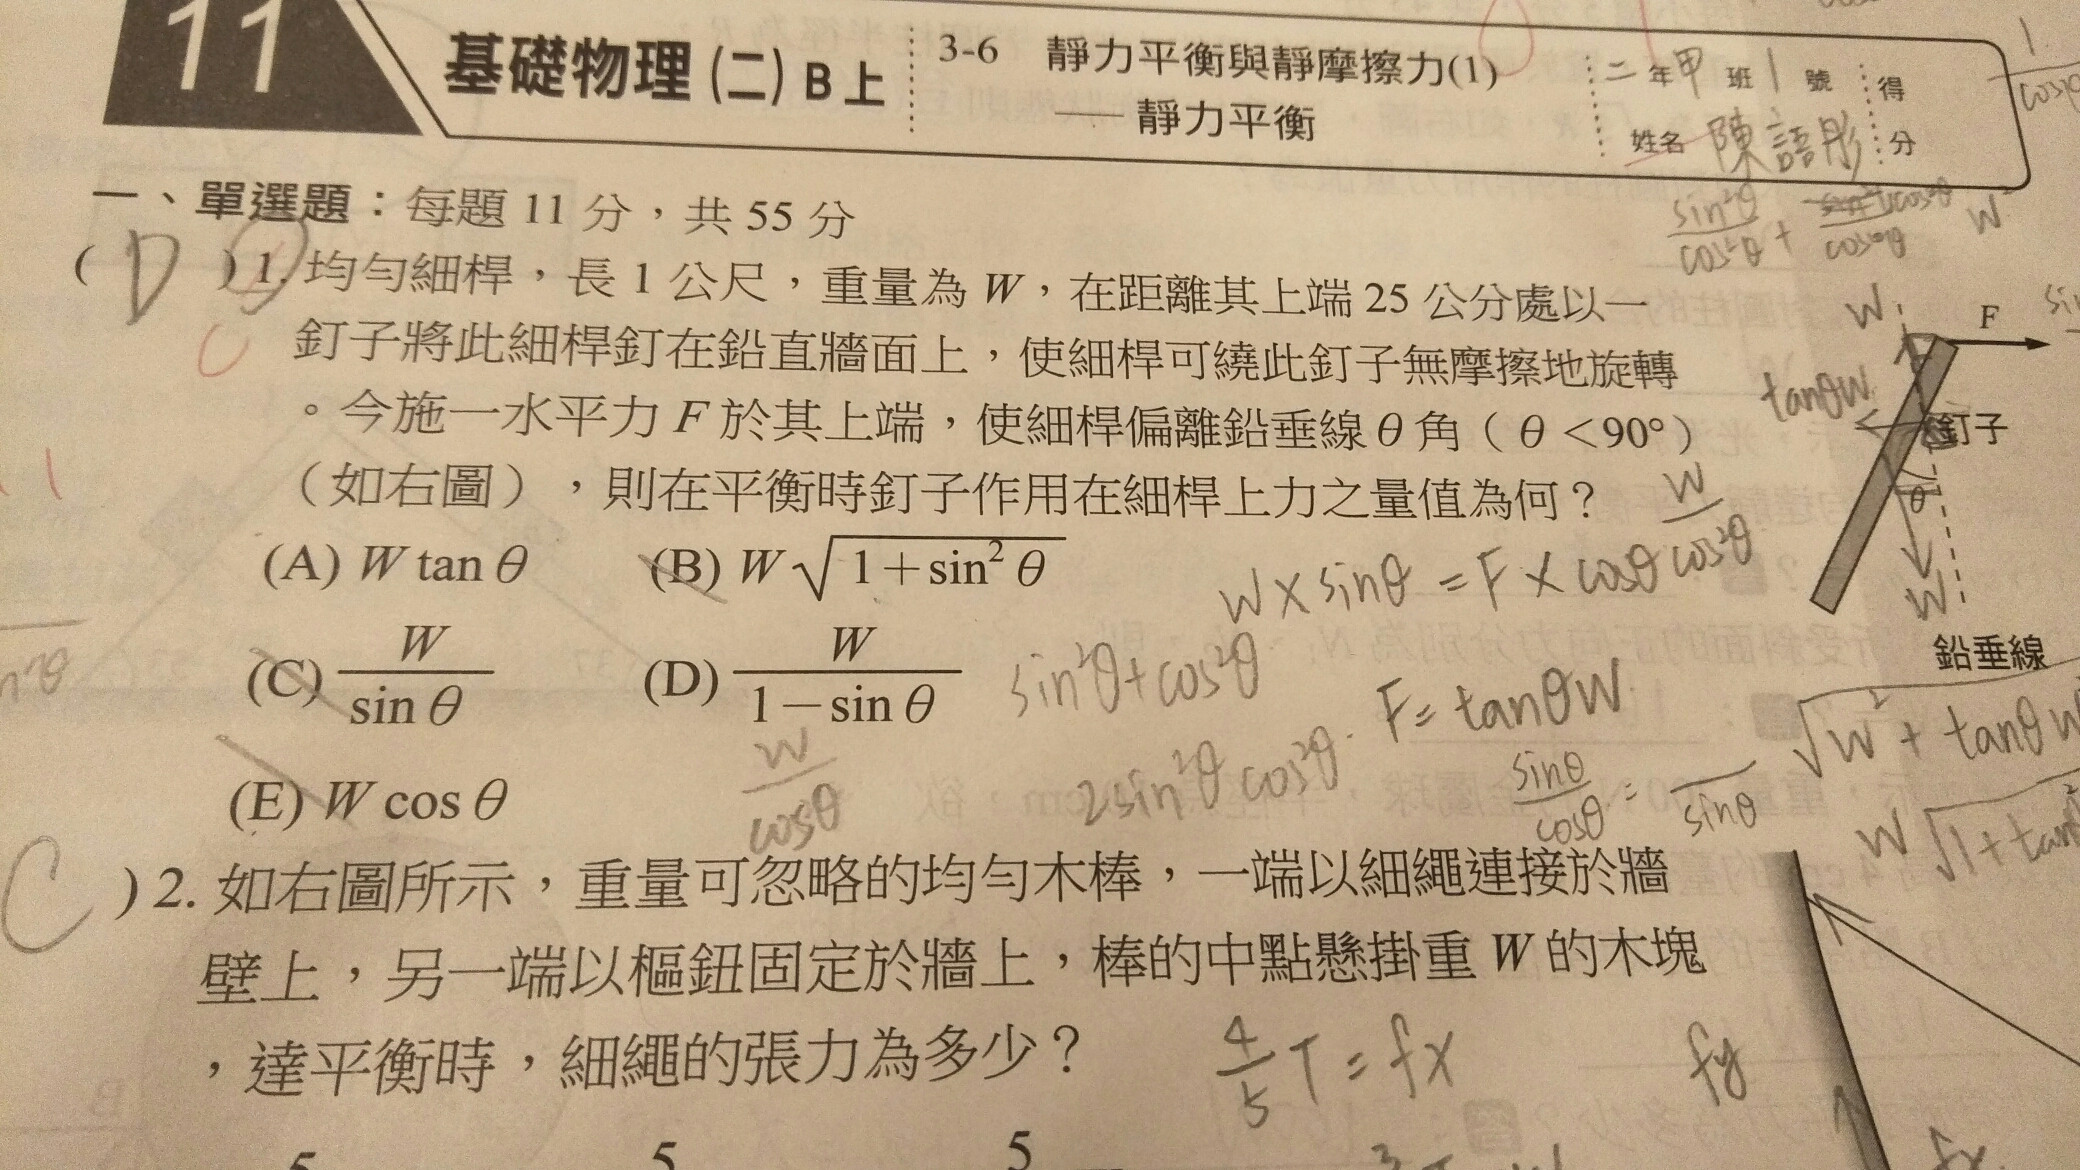 11
基礎物理(二)B上
3-6 靜力平衡與靜摩擦力(1)
——靜力平衡
二年甲班1號
姓名 陳語彤
得分
一、單選題：每題11分，共55分
(D)1.均勻細桿，長1公尺，重量為W，在距離其上端25公分處以一
C
釘子將此細桿釘在鉛直牆面上，使細桿可繞此釘子無摩擦地旋轉
。今施一水平力F於其上端，使細桿偏離鉛垂線θ角（θ＜90°）
（如右圖），則在平衡時釘子作用在細桿上力之量值為何？
(A) W tan θ (B) W√(1＋sin² θ)
(C) W/sin θ (D) W/(1－sin θ)
(E) W cos θ
W/cosθ
W×sinθ = F×cosθ
W/cos²θ
cos²θ
sin²θ+cos²θ
F= tanθW
2sin²θcos²θ
sinθ/cosθ =
sinθ
√W²+tanθW
W√1+tan²
W
F
tanθW
釘子
θ
W
鉛垂線
C)2.如右圖所示，重量可忽略的均勻木棒，一端以細繩連接於牆
壁上，另一端以樞鈕固定於牆上，棒的中點懸掛重W的木塊
，達平衡時，細繩的張力為多少？
4/5 T = fx
fy
fx
5 5 5